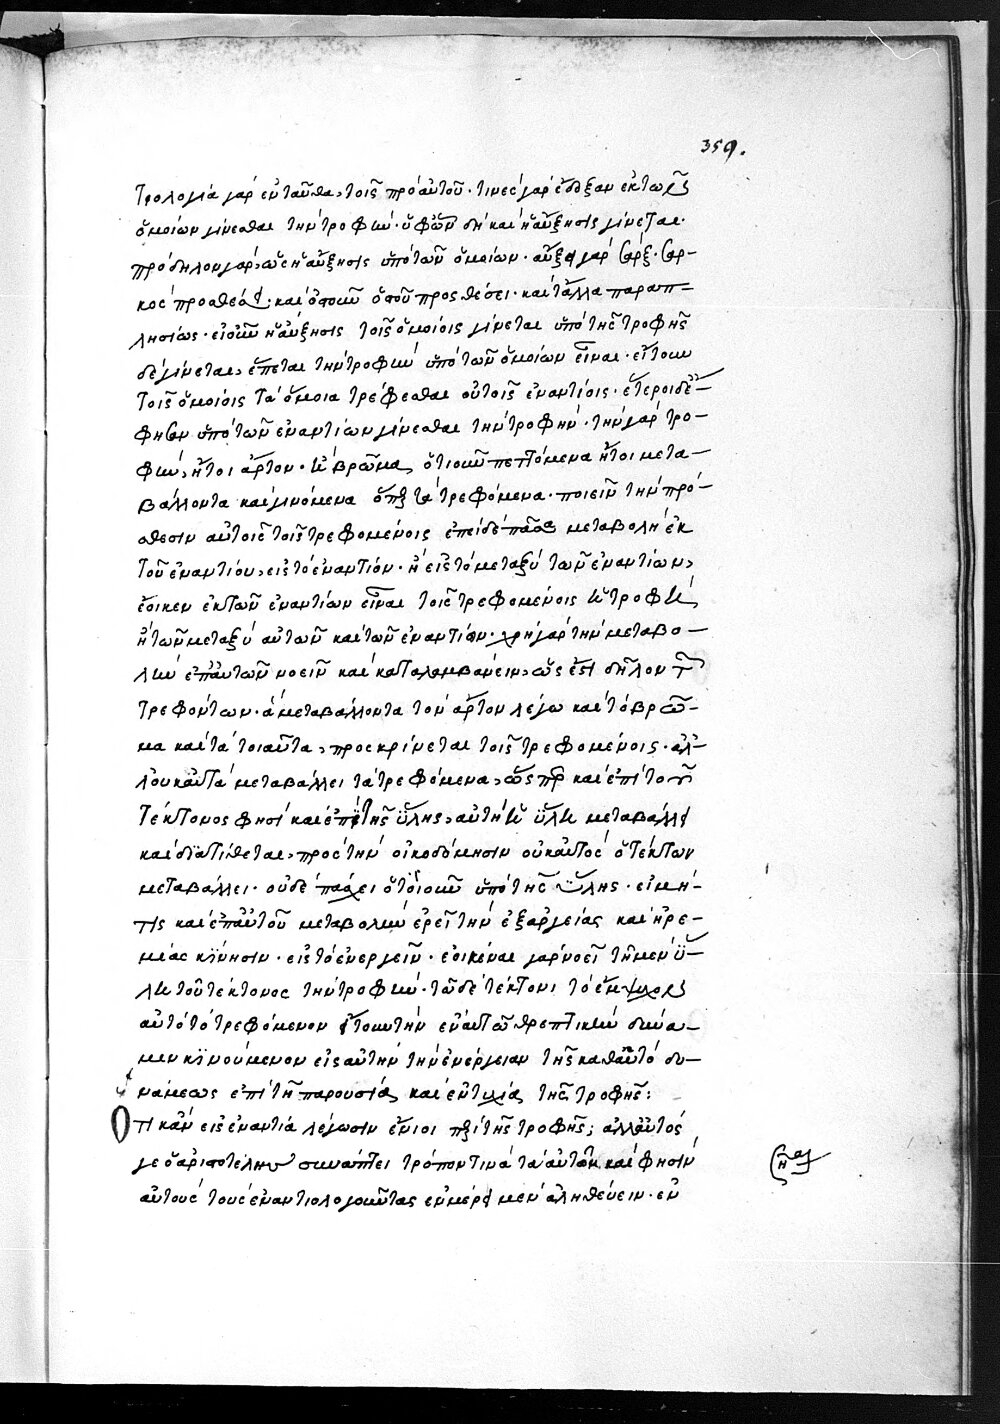 359.
τρολογία γὰρ ἐνταῦθα, τοῖς πρὸ αὐτοῦ· τινὲς γὰρ ἔδειξαν ἐκ τῶν
ὁμοίων γίνεσθαι τὴν τροφήν· ὑφ' ὧν δὴ καὶ ἡ αὔξησις γίνεται·
πρόδηλον γὰρ, ὡς ἡ αὔξησις ὑπὸ τῶν ὁμοίων· αὔξει γὰρ σάρξ· σαρ-
κὸς προσθέσει· καὶ ὀστοῦν ὀστοῦ προσθέσει· καὶ τἄλλα παραπ-
λησίως· εἰ οὖν ἡ αὔξησις τοῖς ὁμοίοις γίνεται ὑπὸ τῆς τροφῆς
δὲ γίνεται, ἕπεται τὴν τροφὴν ὑπὸ τῶν ὁμοίων εἶναι· εἴτουν
τοῖς ὁμοίοις τὰ ὅμοια τρέφεσθαι οὐ τοῖς ἐναντίοις· ἕτεροι δὲ
φησὶν ὑπὸ τῶν ἐναντίων γίνεσθαι τὴν τροφήν· τὴν γὰρ τρο-
φὴν, ἤτοι ἄρτον· ἢ βρῶμα, ὁτιοῦν πεπτόμενα ἤτοι μετα-
βάλλοντα καὶ γινόμενα ὅπερ τὰ τρεφόμενα· ποιεῖν τὴν πρό-
σθεσιν αὐτοῖς τοῖς τρεφομένοις ἐπεὶ δὲ πᾶσα μεταβολὴ ἐκ
τοῦ ἐναντίου, εἰς τὸ ἐναντίον· ἢ εἰς τὸ μεταξὺ τῶν ἐναντίων,
ἔοικεν ἐκ τῶν ἐναντίων εἶναι τοῖς τρεφομένοις ἡ τροφὴ,
ἢ τῶν μεταξὺ αὐτῶν καὶ τῶν ἐναντίων· χρὴ γὰρ τὴν μεταβο-
λὴν ἐπ' αὐτῶν νοεῖν καὶ καταλαμβάνειν, ὡς ἔστι δῆλον τῶν
τρεφόντων· ἃ μεταβάλλοντα τὸν ἄρτον λέγω καὶ τὸ βρῶ-
μα καὶ τὰ τοιαῦτα, προσκρίνεται τοῖς τρεφομένοις· ἀλ-
λ' οὐκ αὐτὰ μεταβάλλει τὰ τρεφόμενα, ὥσπερ καὶ ἐπὶ τοῦ
τέκτονος φησὶ καὶ ἐπὶ τῆς ὕλης, αὐτὴ ἡ ὕλη μεταβάλλει
καὶ διατίθεται, πρὸς τὴν οἰκοδόμησιν οὐκ αὐτὸς ὁ τέκτων
μεταβάλλει· οὐδὲ πάσχει ὁτιοῦν ὑπὸ τῆς ὕλης· εἰ μή-
τις καὶ ἐπ' αὐτοῦ μεταβολὴν ἐρεῖ τὴν ἐξ ἀργείας καὶ ἠρε-
μίας κίνησιν· εἰς τὸ ἐνεργεῖν· ἐοικέναι γὰρ νοεῖ τῇ μὲν ὕ-
λῃ τοῦ τέκτονος τὴν τροφήν· τῷ δὲ τέκτονι τὸ ἔμψυχον
αὐτὸ τὸ τρεφόμενον ἤτουν τὴν ἐν αὐτῷ θρεπτικὴν δύνα-
μιν κινούμενον εἰς αὐτὴν τὴν ἐνέργειαν τῆς καθ' αὐτὸ δυ-
νάμεως ἐπὶ τῇ παρουσίᾳ καὶ ἐντυχίᾳ τῆς τροφῆς:
Ὅτι κἂν εἰς ἐναντία λέγωσιν ἔνιοι περὶ τῆς τροφῆς; ἀλλ' αὐτός
γε ὁ ἀριστοτέλης συνάπτει τρόπον τινὰ ταὐτὸν καὶ φησὶν
αὐτοὺς τοὺς ἐναντιολογοῦντας ἐν μέρει μὲν ἀληθεύειν· ἐν